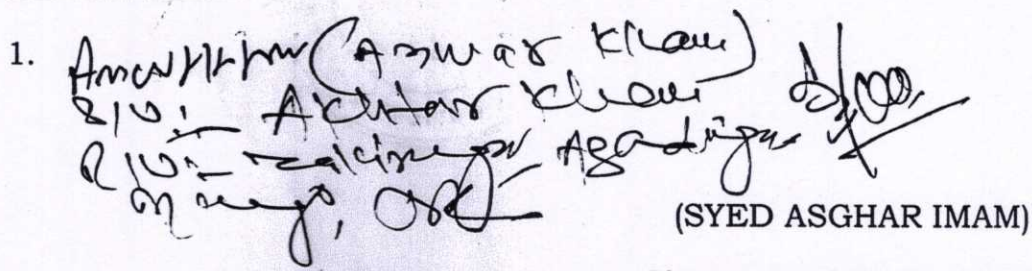 1. (Anwar Khan)
S/O:- Akhtar Khan
R/O:- Zakirnagar Azadnagar
Mango,
(SYED ASGHAR IMAM)